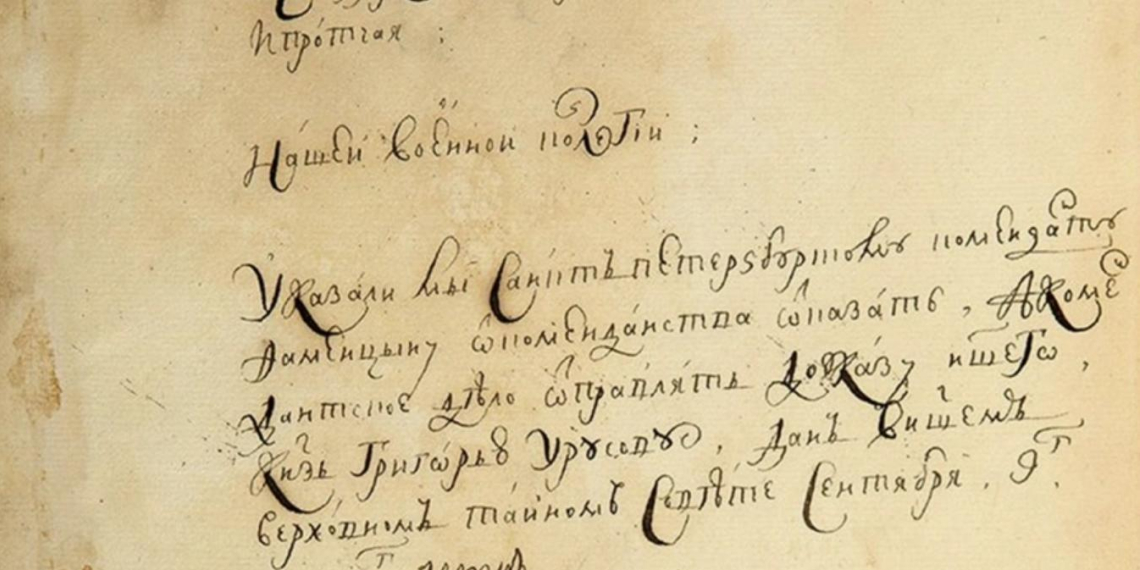 Ипро́тчая :
На́шеи вое́ннои колеГіи ;
Указа́ли мы Санктъпетерзбургскому коменда́нту
Фамеицыну ѿкоменда́нства ѿказа́ть , Акоме
дантское дѣло ѿправля́ть до Ука́зу нше́гѡ ,
Кнзь Григо́рью Урусову , Данъ внашемъ
верхо́вномъ та́йномъ Совѣ́те Сентября . 9 г .